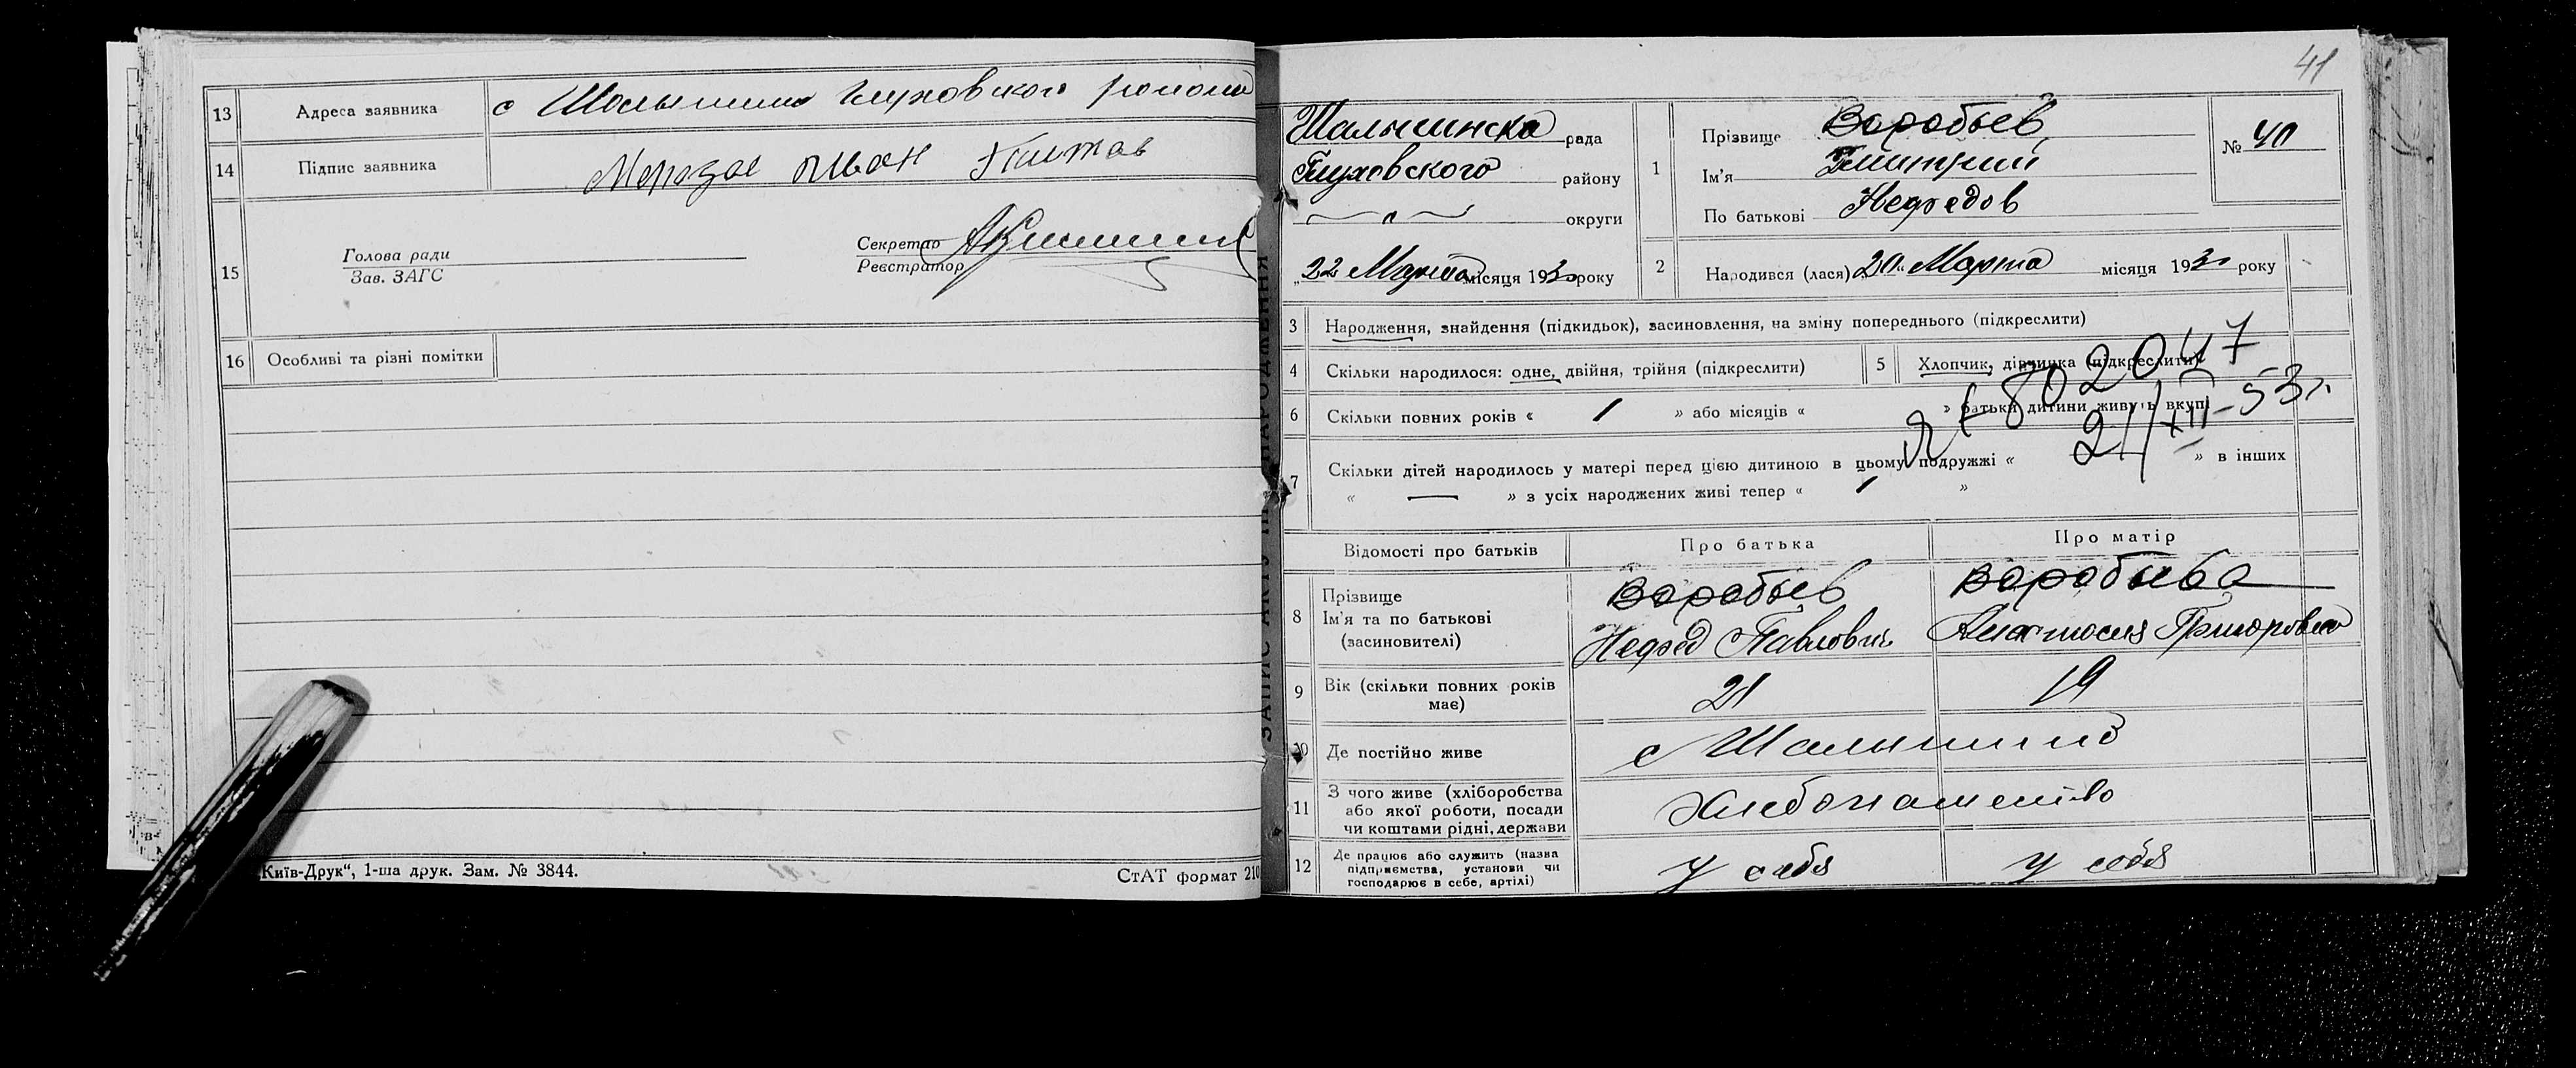 13 Адреса заявника с Шалыгина Глуховского района
14 Підпис заявника Морозов Иван
15 Голова ради
Зав. ЗАГС
Секретар
Реєстратор
16 Особливі та різні помітки
Київ-Друк“, 1-ша друк. Зам. № 3844.
СтАТ формат 210
ЗАПИС АКТУ ПРО НАРОДЖЕННЯ
41
Шалыгинска рада
Глуховского району
округи
„22 Марта місяця 1930 року
1 Прізвище Воробьев
Ім'я Дмитрий
По батькові Нефедов
№ 40
2 Народився (лася) „20„ Марта місяця 1930 року
3 Народження, знайдення (підкидьок), засиновлення, на зміну попереднього (підкреслити)
4 Скільки народилося: одне, двійня, трійня (підкреслити)
5 Хлопчик, дівчинка (підкреслити)
6 Скільки повних років « 1 » або місяців « » батьки дитини живуть вкупі
802047
24/XII-53г.
7 Скільки дітей народилось у матері перед цією дитиною в цьому подружжі « – » в інших
« — » з усіх народжених живі тепер « 1 »
Відомості про батьків Про батька Про матір
8 Прізвище Воробьев Воробьева
Ім'я та по батькові Нефед Павлович Анастасия Григоровна
(засиновителі)
9 Вік (скільки повних років має) 21 19
10 Де постійно живе с Шалыгино
11 З чого живе (хліборобства
або якої роботи, посади
чи коштами рідні, держави
Хлебопашество
12 Де працює або служить (назва
підприємства, установи чи
господарює в себе, артілі)
у себя у себя